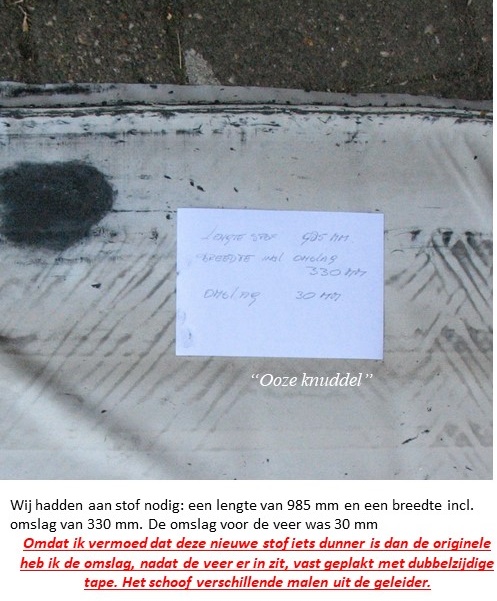 LENGTE STOF 985 MM.
BREEDTE INCL OMSLAG
330 MM
OMSLAG 30 MM
“Ooze knuddel”
Wij hadden aan stof nodig: een lengte van 985 mm en een breedte incl.
omslag van 330 mm. De omslag voor de veer was 30 mm
Omdat ik vermoed dat deze nieuwe stof iets dunner is dan de originele
heb ik de omslag, nadat de veer er in zit, vast geplakt met dubbelzijdige
tape. Het schoof verschillende malen uit de geleider.